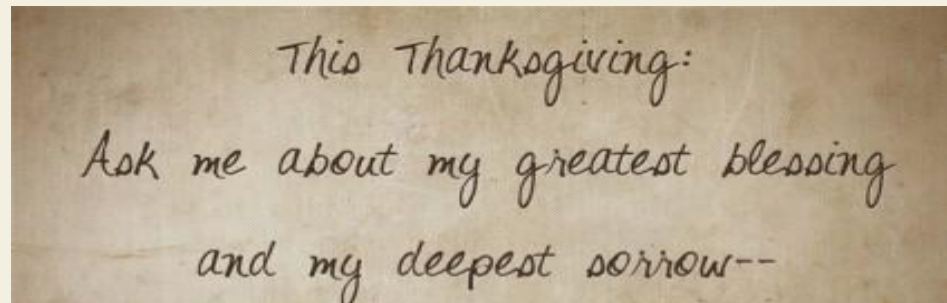 This Thanksgiving:
Ask me about my greatest blessing
and my deepest sorrow--